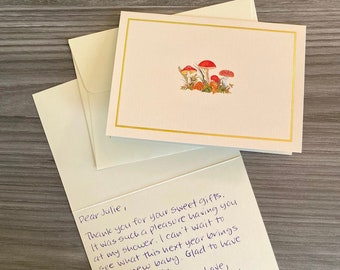 Dear Julie,
Thank you for your sweet gifts.
It was such a pleasure having you
at my shower. I can't wait to
see what this next year brings
new baby. Glad to have
Love,